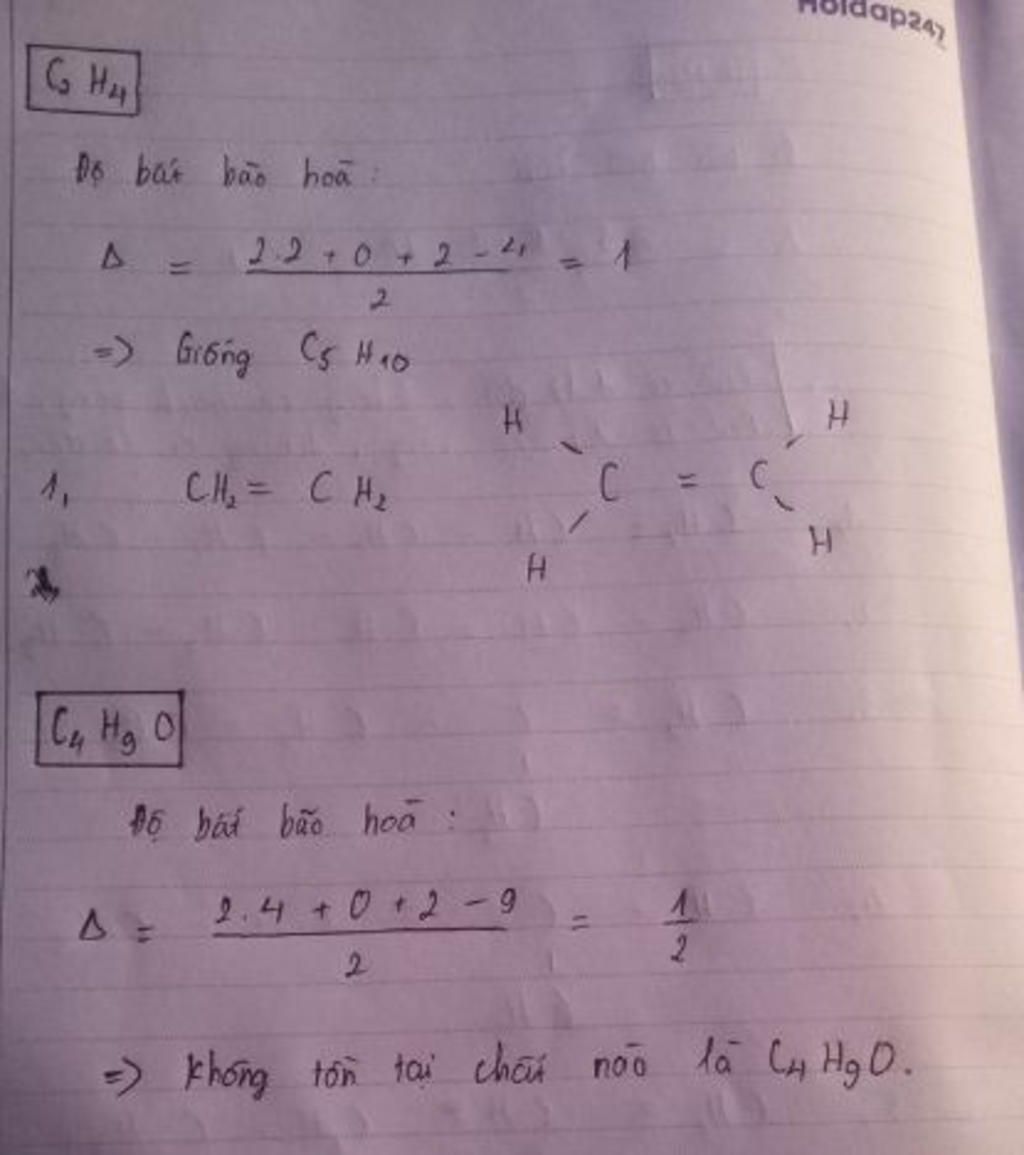 Hoidap247
C2 H4
Độ bất bão hoà :
Δ = (2.2 + 0 + 2 - 4) / 2 = 1
=> Giống C5 H10
H H
1, CH2 = C H2 C = C
H H
C4 H9 O
Độ bất bão hoà :
Δ = (2.4 + 0 + 2 - 9) / 2 = 1/2
=> không tồn tại chất nào là C4 H9 O.